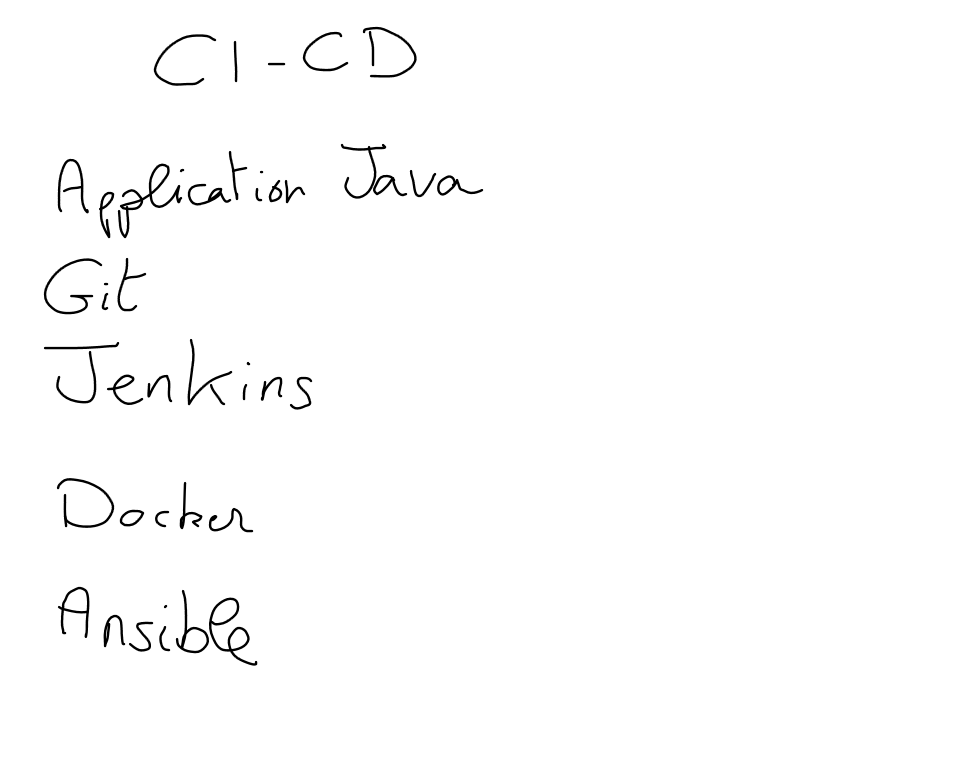 CI-CD
Application Java
Git
Jenkins
Docker
Ansible